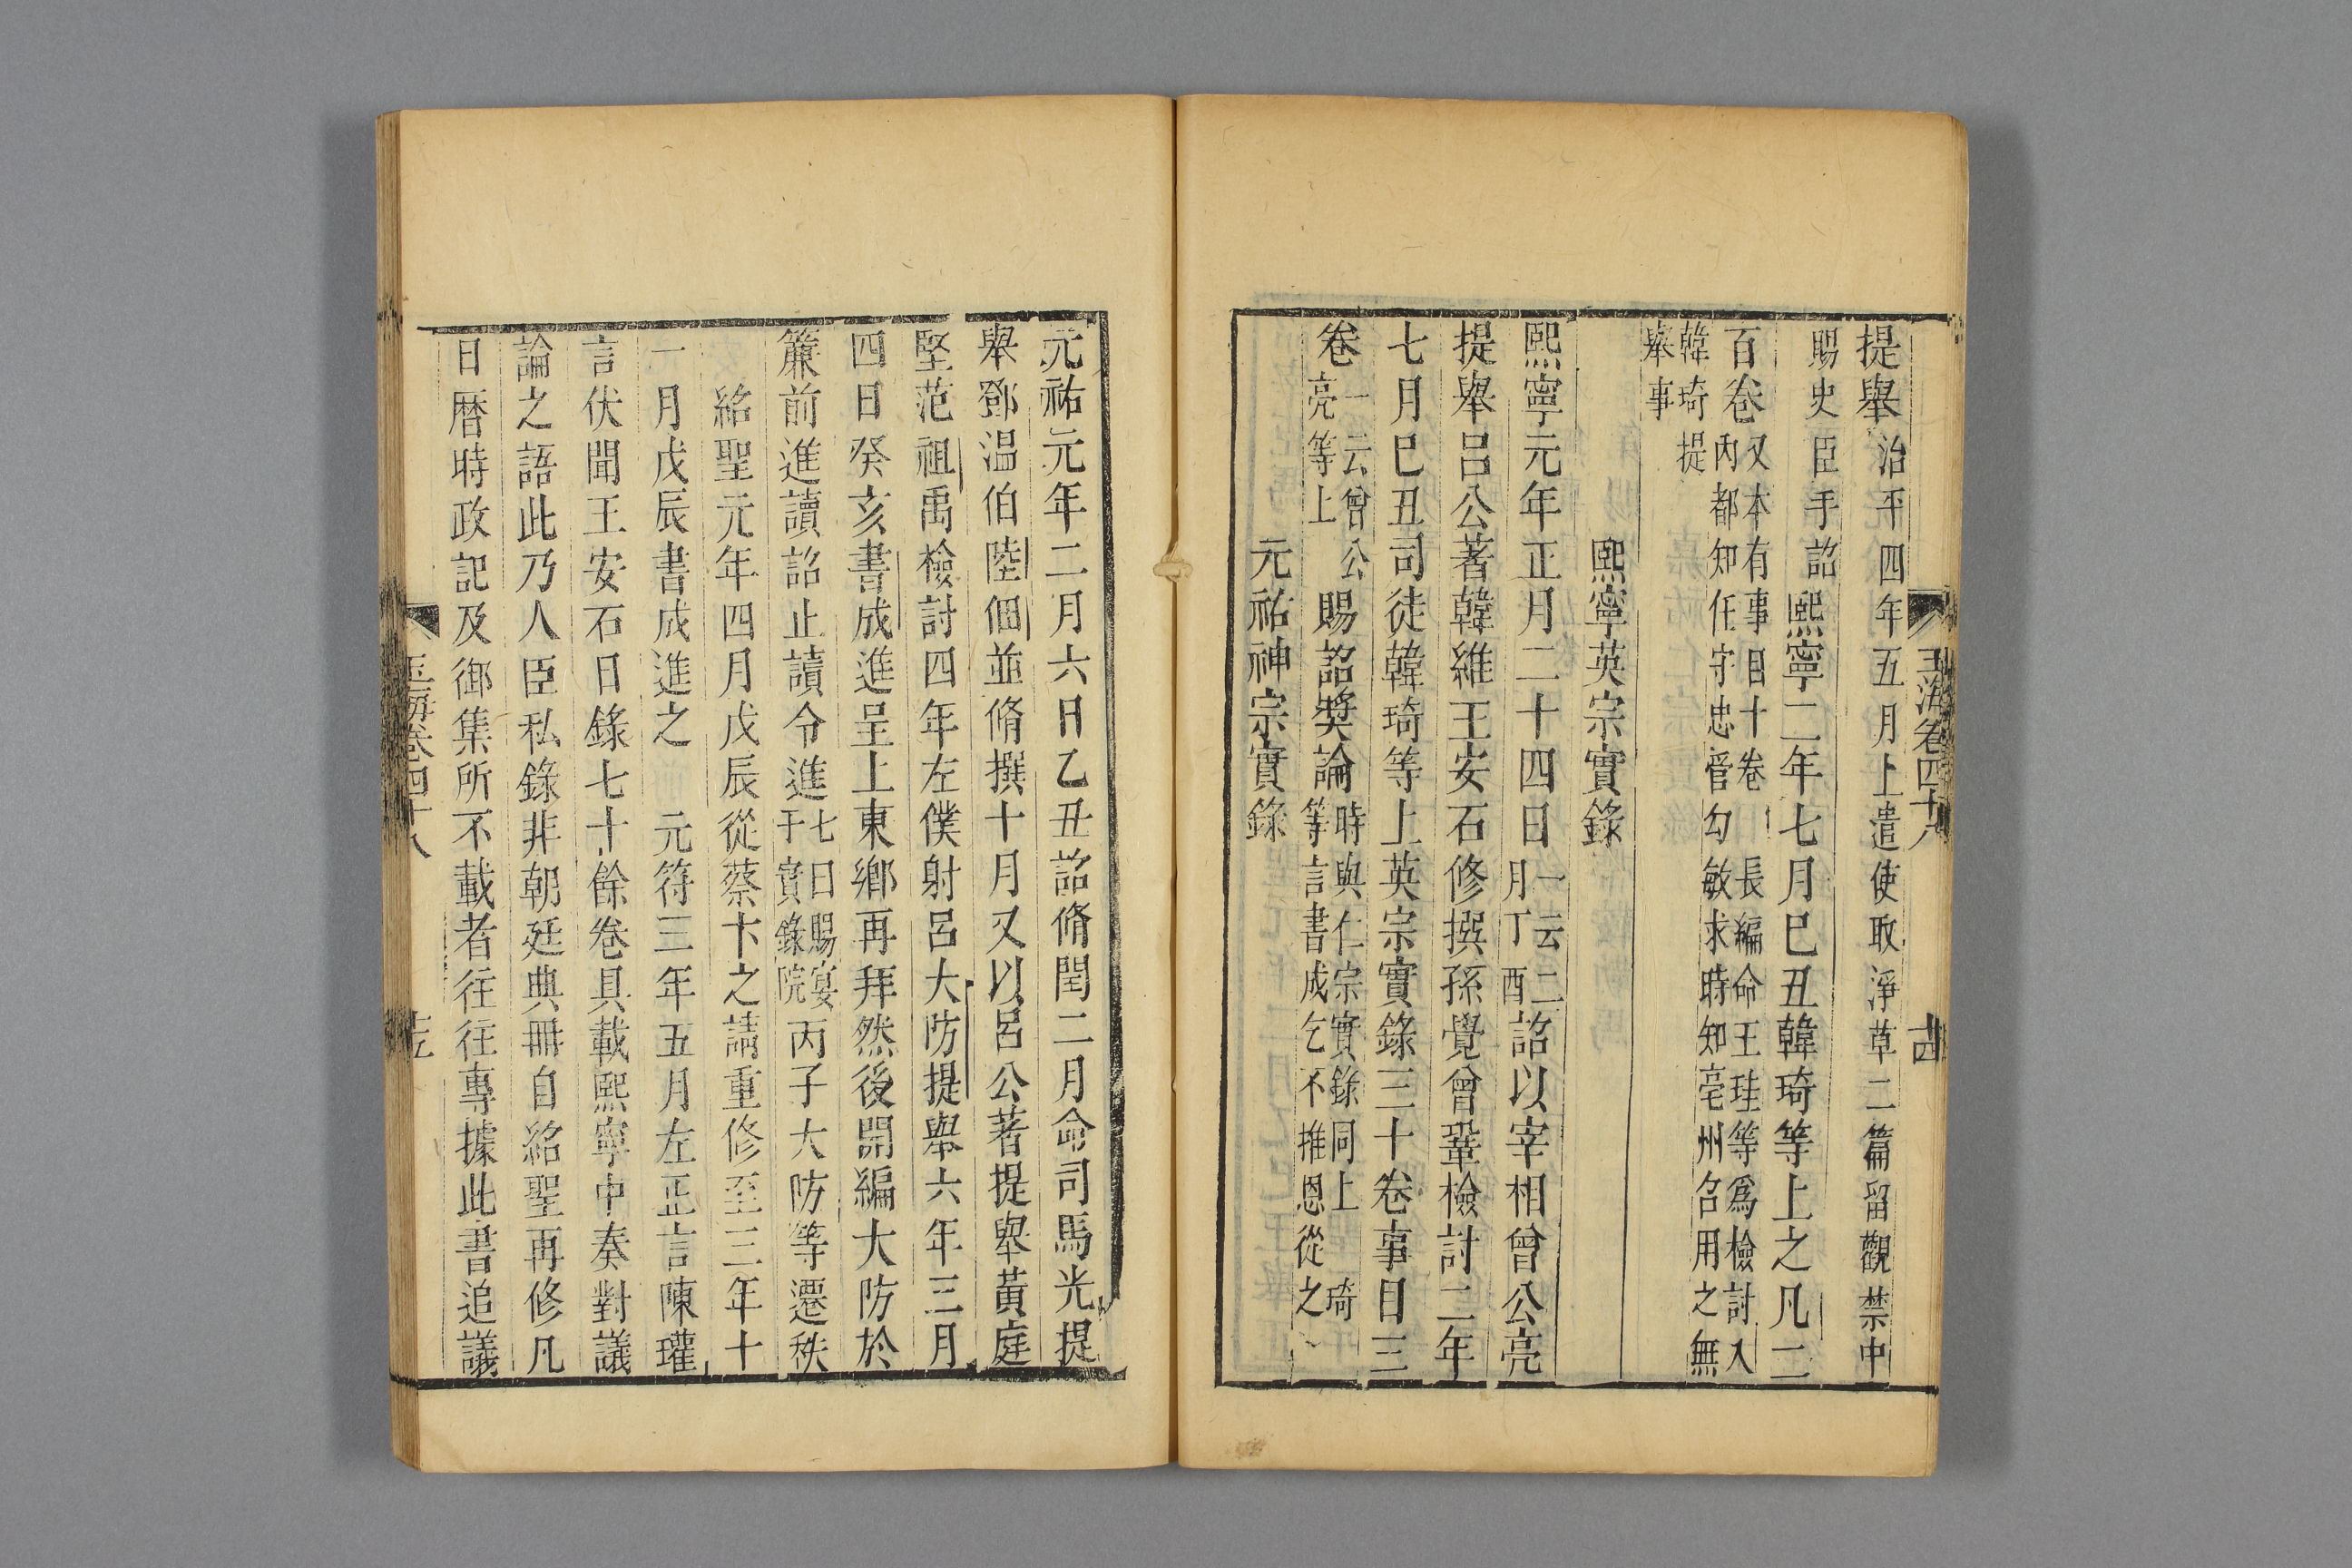 玉海卷四十八 十四
提舉治平四年五月上遣使取淨草二篇留觀禁中
賜史臣手詔熙寧二年七月巳丑韓琦等上之凡二
百卷又本有事目十卷 長編命王珪等爲檢討入
丙都知任守忠管勾敏求時知亳州召用之無
韓琦提
舉事
熙寧英宗實錄
熙寧元年正月二十四日一云二月丁酉詔以宰相曾公亮
提舉呂公著韓維王安石修撰孫覺曾鞏檢討二年
七月巳丑司徒韓琦等上英宗實錄三十卷事目三
卷一云曾公亮等上賜詔獎論時與仁宗實錄同上 琦等言書成乞不推恩從之
元祐神宗實錄
元祐元年二月六日乙丑詔脩閏二月命司馬光提
舉鄧温伯陸佃並脩撰十月又以呂公著提舉黃庭
堅范祖禹檢討四年左僕射呂大防提舉六年三月
四日癸亥書成進呈上東鄉再拜然後開編大防於
簾前進讀詔止讀令進七日賜宴于實錄院丙子大防等遷秩
紹聖元年四月戊辰從蔡卞之請重修至三年十
一月戊辰書成進之 元符三年五月左正言陳瓘
言伏聞王安石日錄七十餘卷具載熙寧中奏對議
論之語此乃人臣私錄非朝廷典冊自紹聖再修凡
日曆時政記及御集所不載者往往專據此書追議
玉海卷四十八 十五